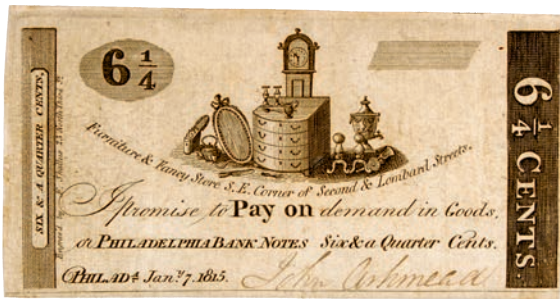 6 1/4
SIX & A QUARTER CENTS.
Furniture & Fancy Store S.E. Corner of Second & Lombard Streets.
I promise to Pay on demand in Goods,
or PHILADELPHIA BANK NOTES Six & a Quarter Cents.
PHILADA Jany. 7. 1815. John Ashmead
6 1/4 CENTS.
Engraved by